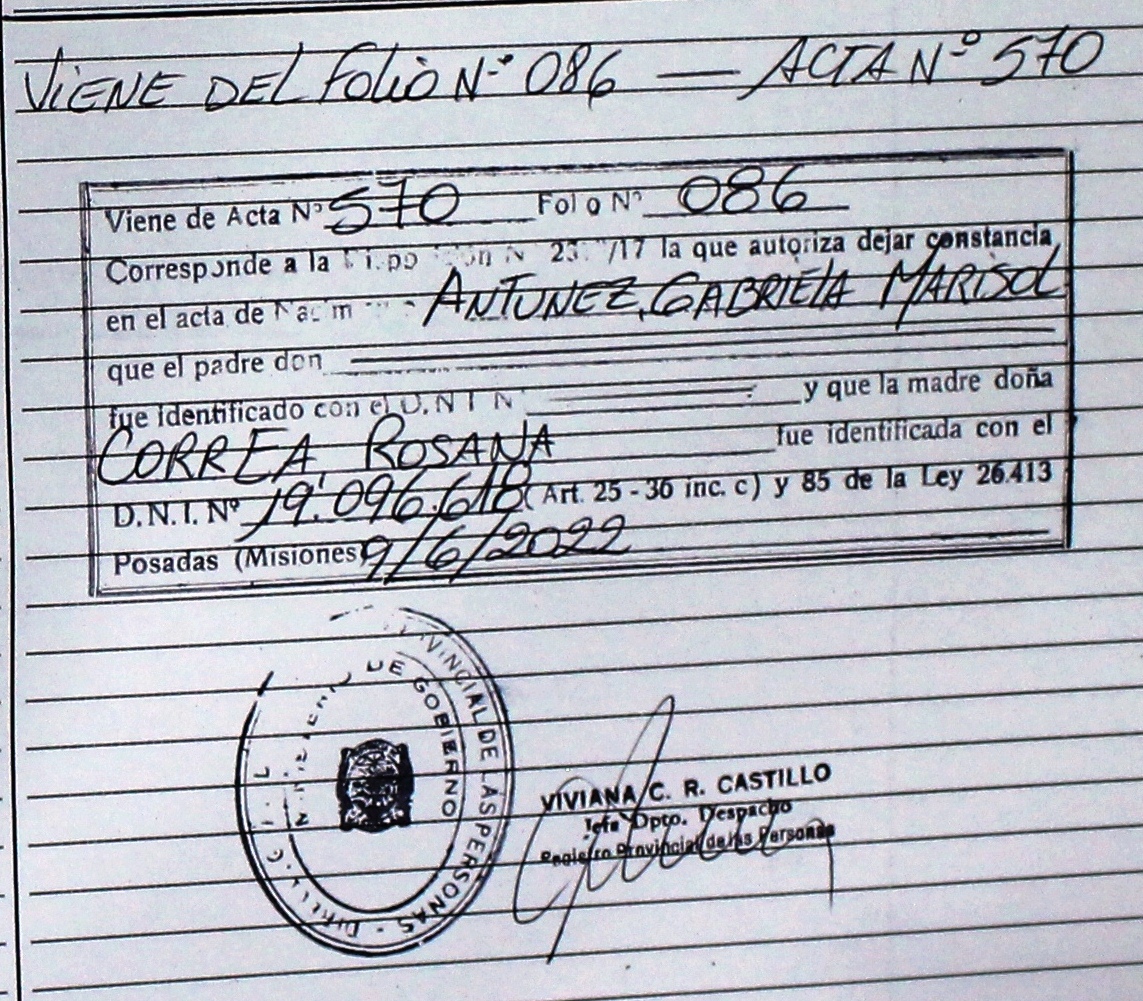 VIENE DEL FOLIO N-° 086 — ACTA N° 570
Viene de Acta N° 570 Folio N° 086
Corresponde a la /17 la que autoriza dejar constancia
en el acta de ANTUNEZ, GABRIELA MARISOL
que el padre don
fue identificado con el D.N.I N y que la madre doña
CORREA, ROSANA fue identificada con el
D.N.I. Nº 19.096.618 (Art. 25 - 36 inc. c) y 85 de la Ley 26.413
Posadas (Misiones) 9/6/2022
DE LAS PERSONAS
DE GOBIERNO
VIVIANA C. R. CASTILLO
Jefa Dpto. Despacho
Registro Provincial de las Personas